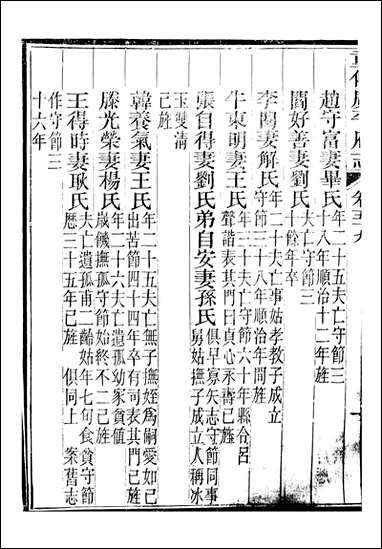 趙守富妻畢氏
年二十五夫亡守節三
十八年順治十二年旌
閻好善妻劉氏
夫亡守節三
十餘年卒
李閣妻解氏
年二十夫亡事姑孝教子成立
守節三十八年順治年間旌
牛東明妻王氏
年三十夫亡守節六十年縣令呂
聲諧表其門曰貞心永壽已旌
張自得妻劉氏弟自安妻孫氏
俱早寡矢志守節同事
舅姑撫子成立人稱冰
玉雙清
已旌
韓養氣妻王氏
年二十五夫亡無子撫姪爲嗣愛如己
出苦節四十四年卒有司表其門已旌
滕光榮妻楊氏
年二十六夫亡遺孤幼家貧値
歲饑撫孤守節始終不二已旌
王得時妻耿氏
夫亡遺孤甫二齡姑年七旬食貧守節
歷三十五年已旌 俱同上 案舊志
作守節三
十六年